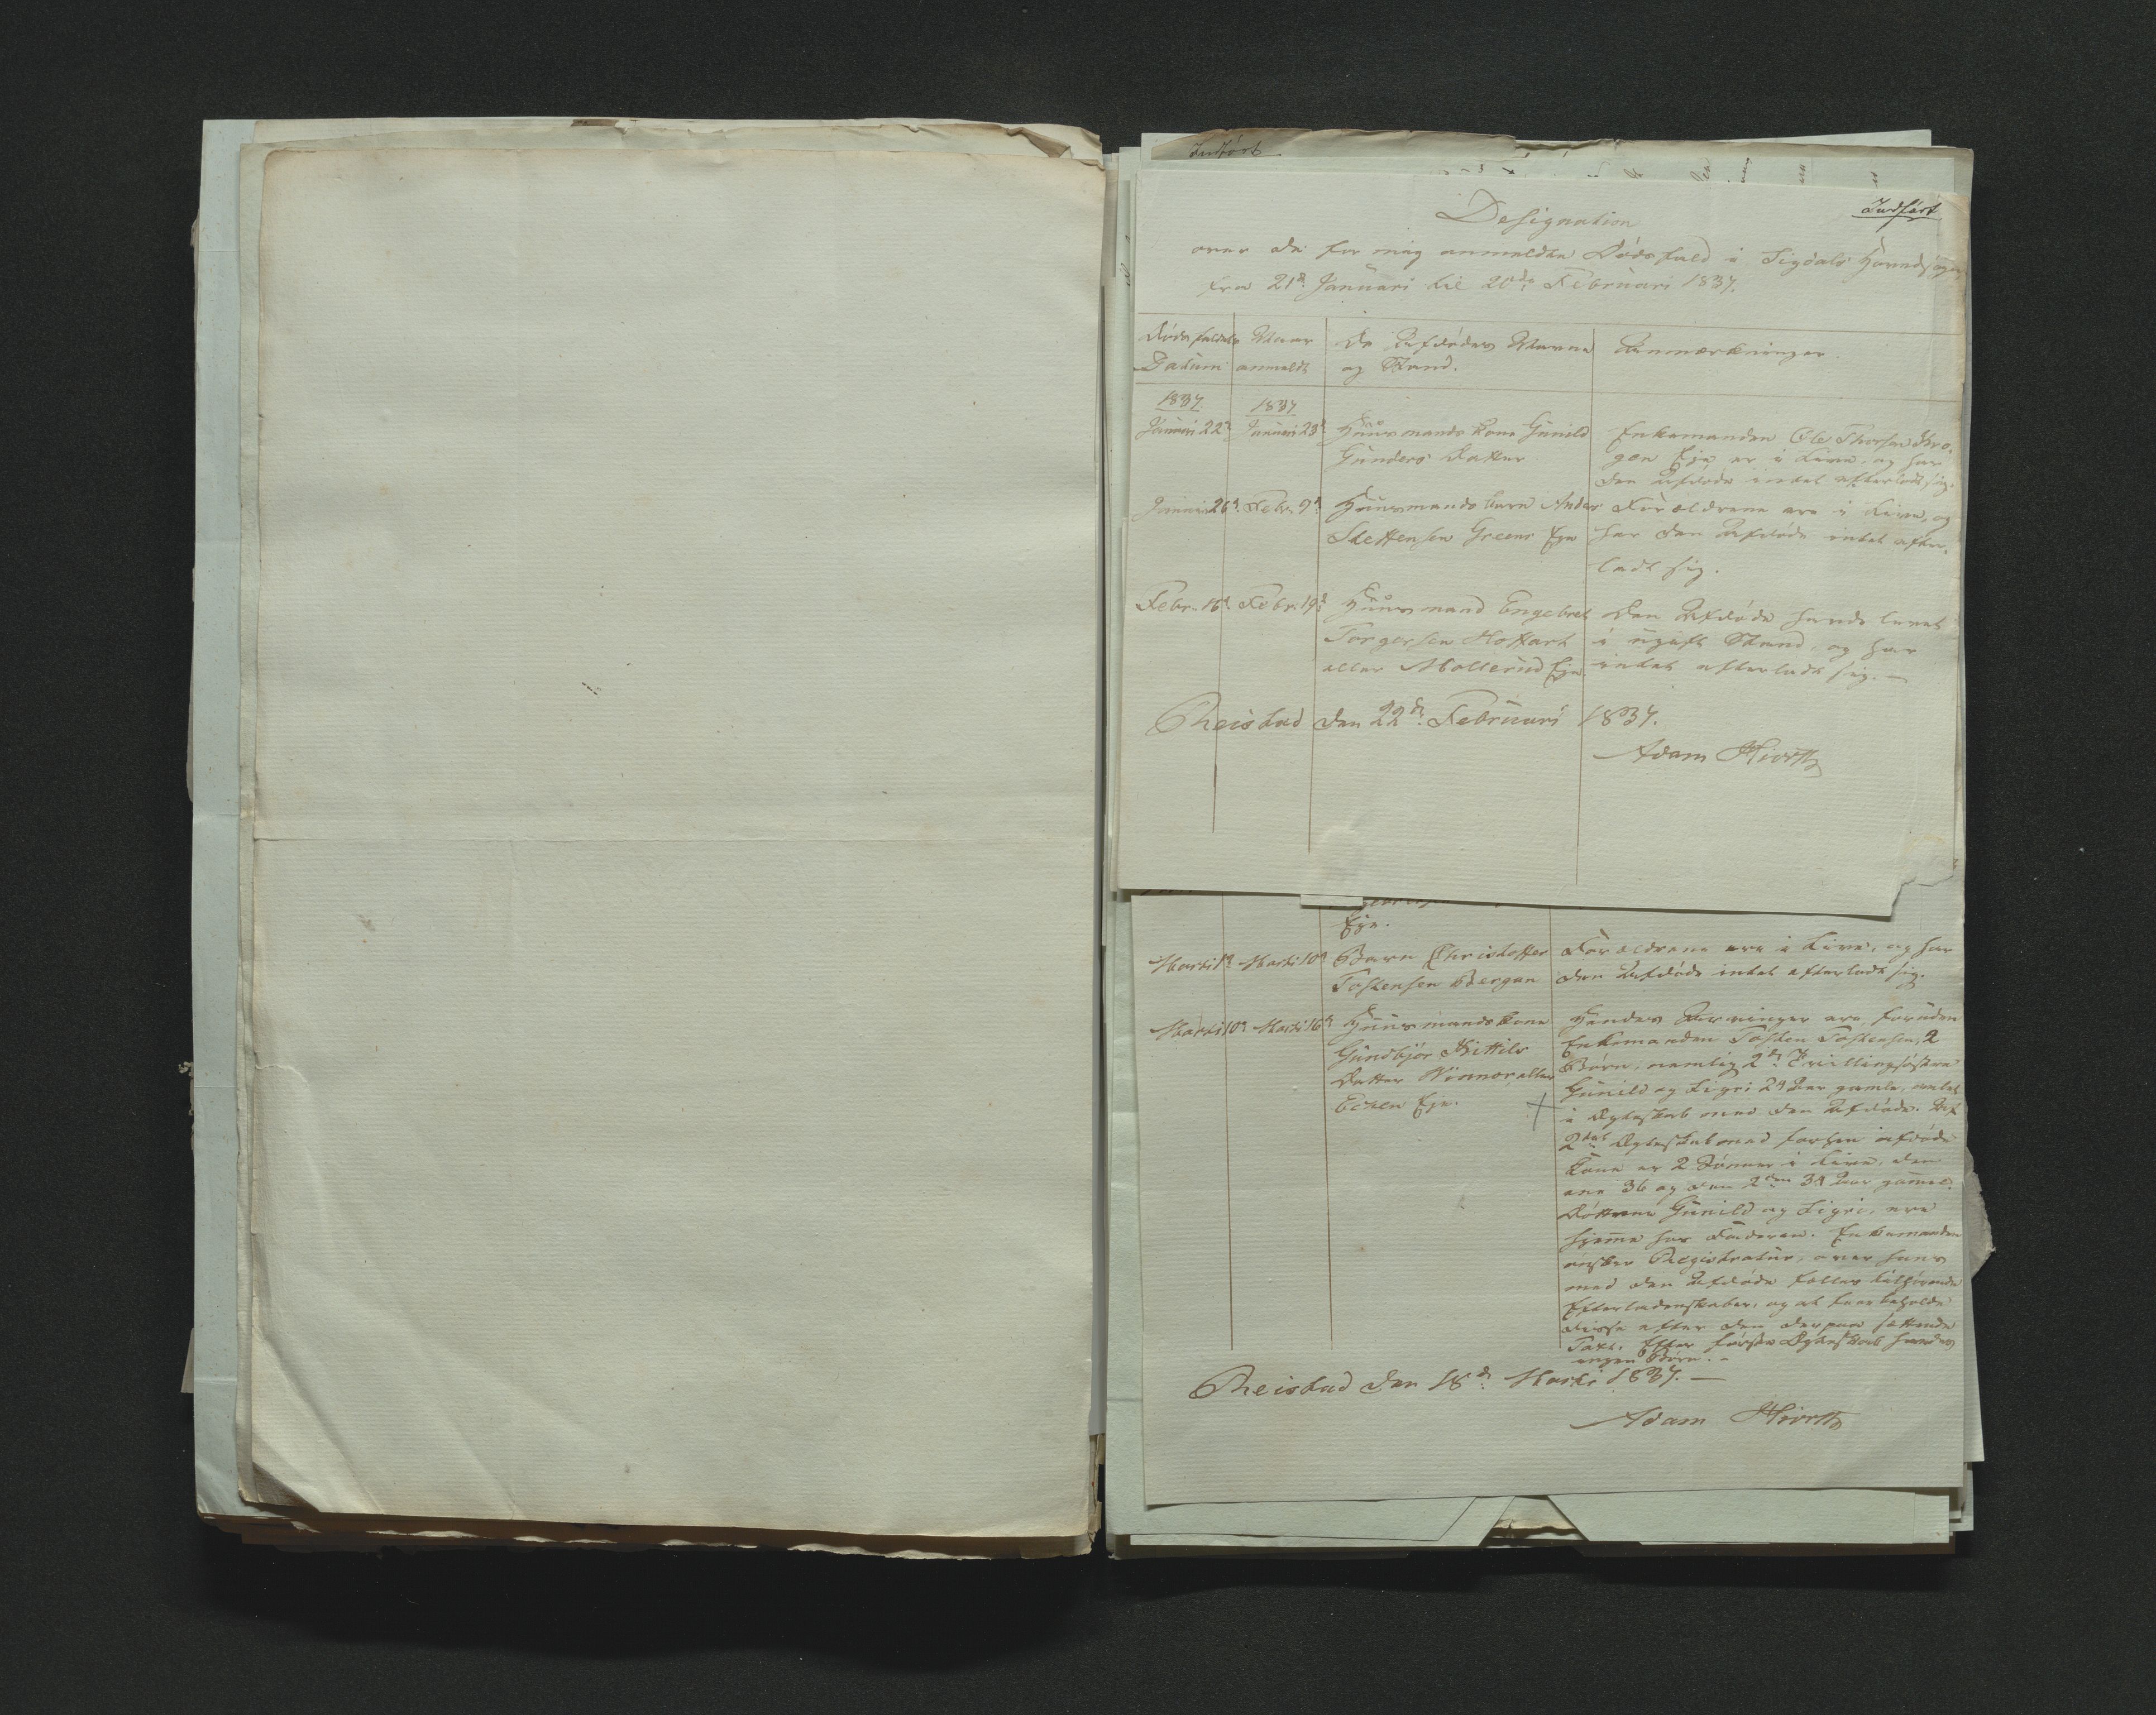 Indført
Indført
Designation
over de for mig anmeldte Dødsfald i Sigdals Hovedsogn
fra 21de Januari til 20de Februari 1837.
Dødsfaldets Datum
Naar anmeldt
De Afdødes Navne og Stand.
Anmærkninger.
1837
1837
Januari 22de Januari 23de Huusmands Kone Gunild
Gunders Datter
Enkemanden Ole Thorsen
Eje er i Live, og har
den Afdøde intet efterladt sig.
Januari 26de Febr. 9de Huusmands barn Anders
Steffensen Greens Eje
Forældrene ere i Live, og
har den Afdøde intet efter-
ladt sig.
Febr. 16de Febr. 19de Huusmand Engebret
Torgersen Hoffart
eller Mollerud Eje.
Den Afdøde havde levet
i ugift Stand, og har
intet efterladt sig. —
Reistad den 22de Februari 1837.
Adam Hiorth
Eje.
Marti 1de Marti 10de Barn Christoffer
Tostensen Bergan
Forældrene ere i Live, og har
den Afdøde intet efterladt sig.
Marti 10de Marti 16de Huusmands Kone
Gundbjør Kittils
Datter eller
Eje.
Hendes Arvinger ere, foruden
Enkemanden Tosten Tostensen, 2
Børn, nemlig 2de Tvillingsøstre
Gunild og Sigri 24 Aar gamle, avlet
i Ægteskab med den Afdøde. Af
2det Ægteskab med forhen afdøde
Kone er 2 Sønner i Live, den
ene 36 og den 2den 34 Aar gammel.
Døttrene Gunild og Sigri, ere
hjemme hos Faderen. Enkemanden
ønsker Registratur over hans
med den Afdøde fælles tilhørende
Efterladenskaber, og at faae beholde
disse efter den derpaa sættende
Taxt. Efter første Ægteskab havdes
ingen Børn. —
Reistad den 18de Marti 1837. —
Adam Hiorth